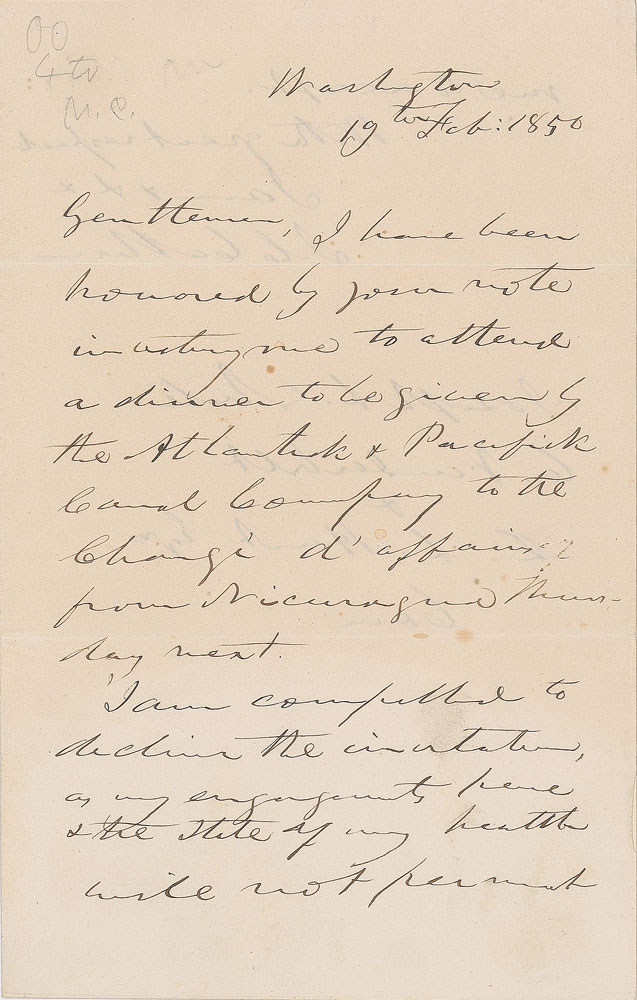 00
4to
N.C.
Washington
19th Feb: 1850
Gentlemen, I have been
honored by your note
inviting me to attend
a dinner to be given by
the Atlantick & Pacifick
Canal Company to the
Chargé d'affaires
from Nicuragua Thurs-
day next.
I am compelled to
decline the invitation,
as my engagements here
& the state of my health
will not permit